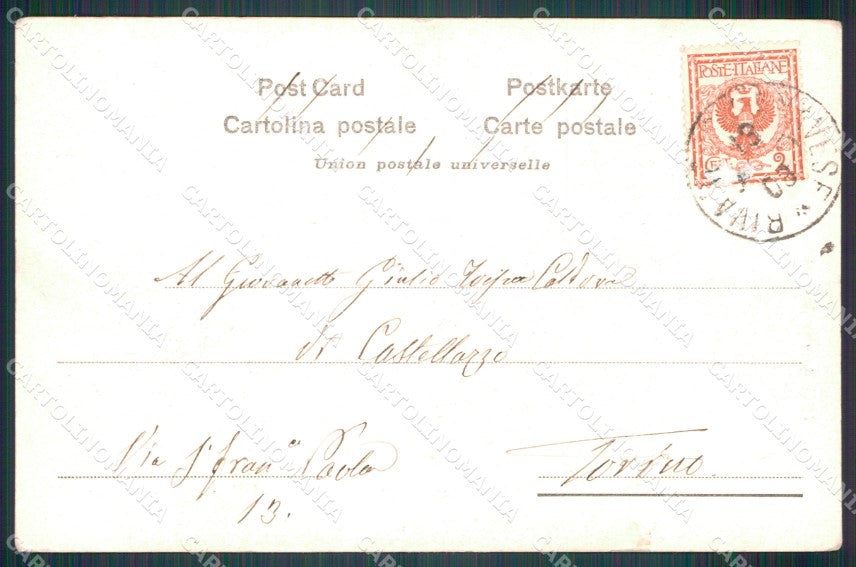 Post Card Postkarte
Cartolina postale Carte postale
Union postale universelle
POSTE·ITALIANE
CENT. 2
CANAVESE * RIVA
Al Giovanetto Giulio Caldora
di Castellazzo
Via S. Fran.co Paola
13.
Torino
CARTOLINOMANIA